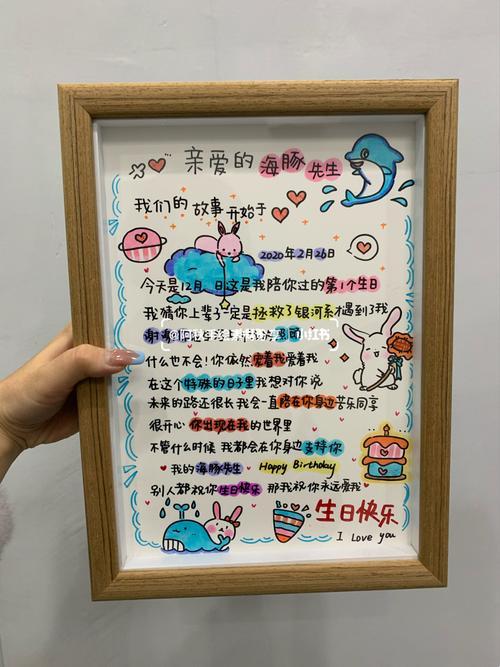 亲爱的海豚先生
我们的故事开始于
2020年2月26日
今天是12月 日这是我陪你过的第1个生日
我猜你上辈子一定是拯救了银河系才遇到了我
谢谢
小红书
什么也不会!你依然宠着我爱着我
在这个特殊的日子里我想对你说
未来的路还很长我会一直陪在你身边苦乐同享
很开心 你出现在我的世界里
不管什么时候 我都会在你身边支持你
我的海豚先生 Happy Birthday
别人都祝你生日快乐 那我祝你永远爱我
生日快乐
I Love you